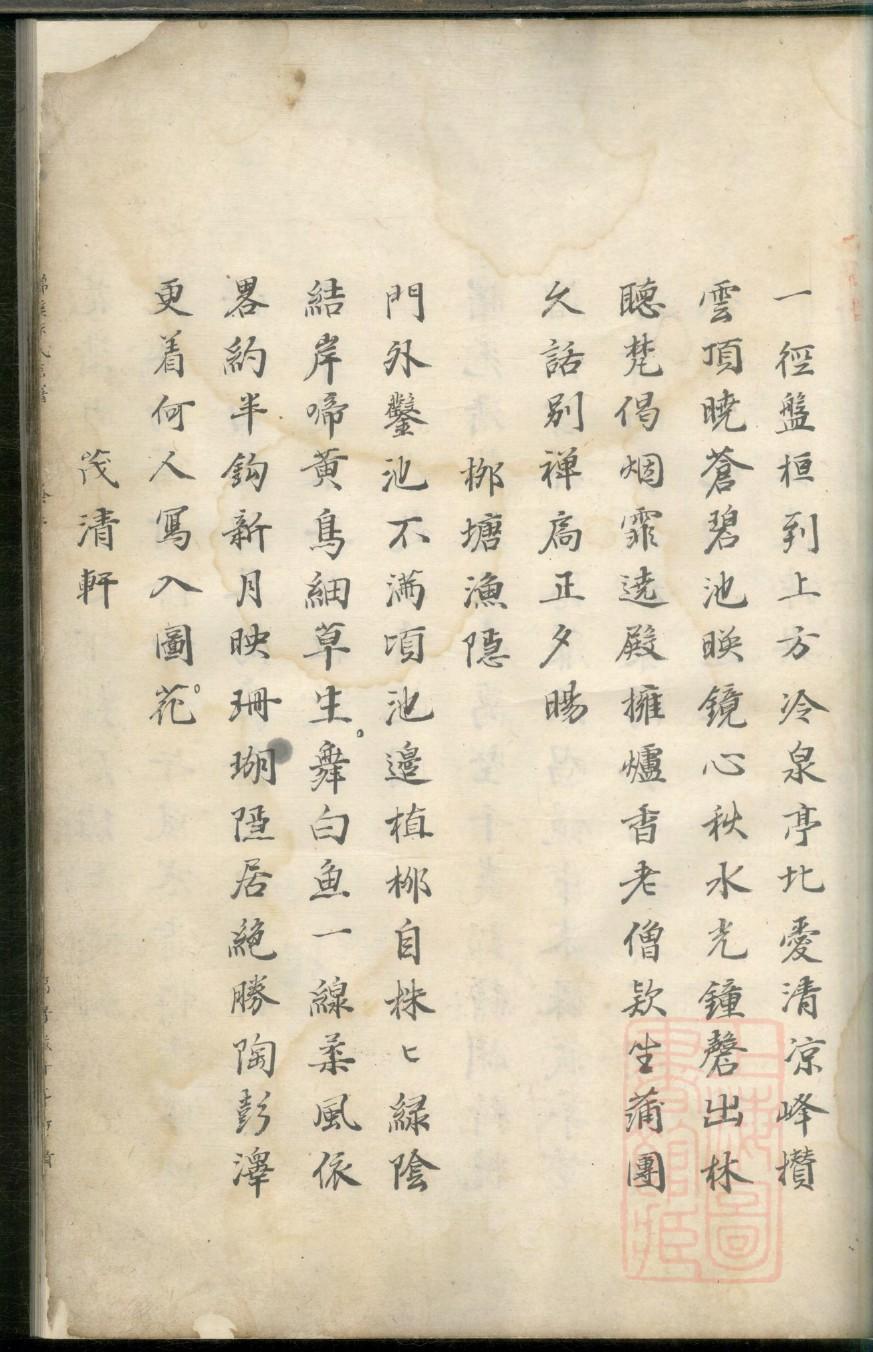 一徑盤桓到上方冷泉亭北愛清凉峰攅
雲頂曉蒼碧池暎鏡心秋水光鐘磬出林
聴梵偈烟霏遶殿擁爐香老僧欵坐蒲團
久話別禅扄正夕暘
桺塘漁隠
門外鑿池不满頃池邉植桺自株〻緑陰
結岸啼黄鳥細草生舞白魚一線柔風依
畧約半鈎新月映珊瑚隠居絶勝陶彭澤
更着何人冩入圖花
茂清軒